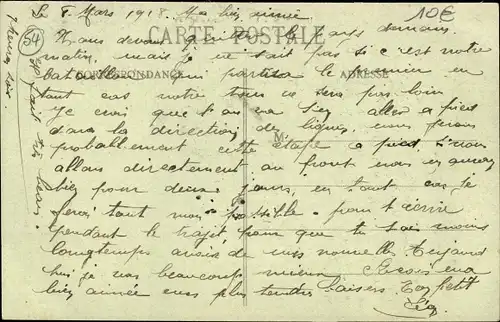 Le 8 Mars 1918 Ma bien aimée
10€
54
CARTE POSTALE
CORRESPONDANCE
ADRESSE
Nous devons quitter le Mars demain
matin, mais je ne sait pas si c'est notre
bataillon qui partira le premier en
tout cas notre tour ne sera pas loin
Je crois que nous va s'en aller a pied
dans la direction des lignes, nous ferons
probablement cette étape a pied si nous
allons directement au front nous en aurons
bien pour deux jours, en tout cas je
ferai tout mon possible pour t'écrire
pendant le trajet pour que tu sois moins
longtemps avoir de mes nouvelles Aujourd
hui je vas beaucoup mieux Reçois ma
bien aimée mes plus tendres baisers Ton petit
Léo
fait très beau